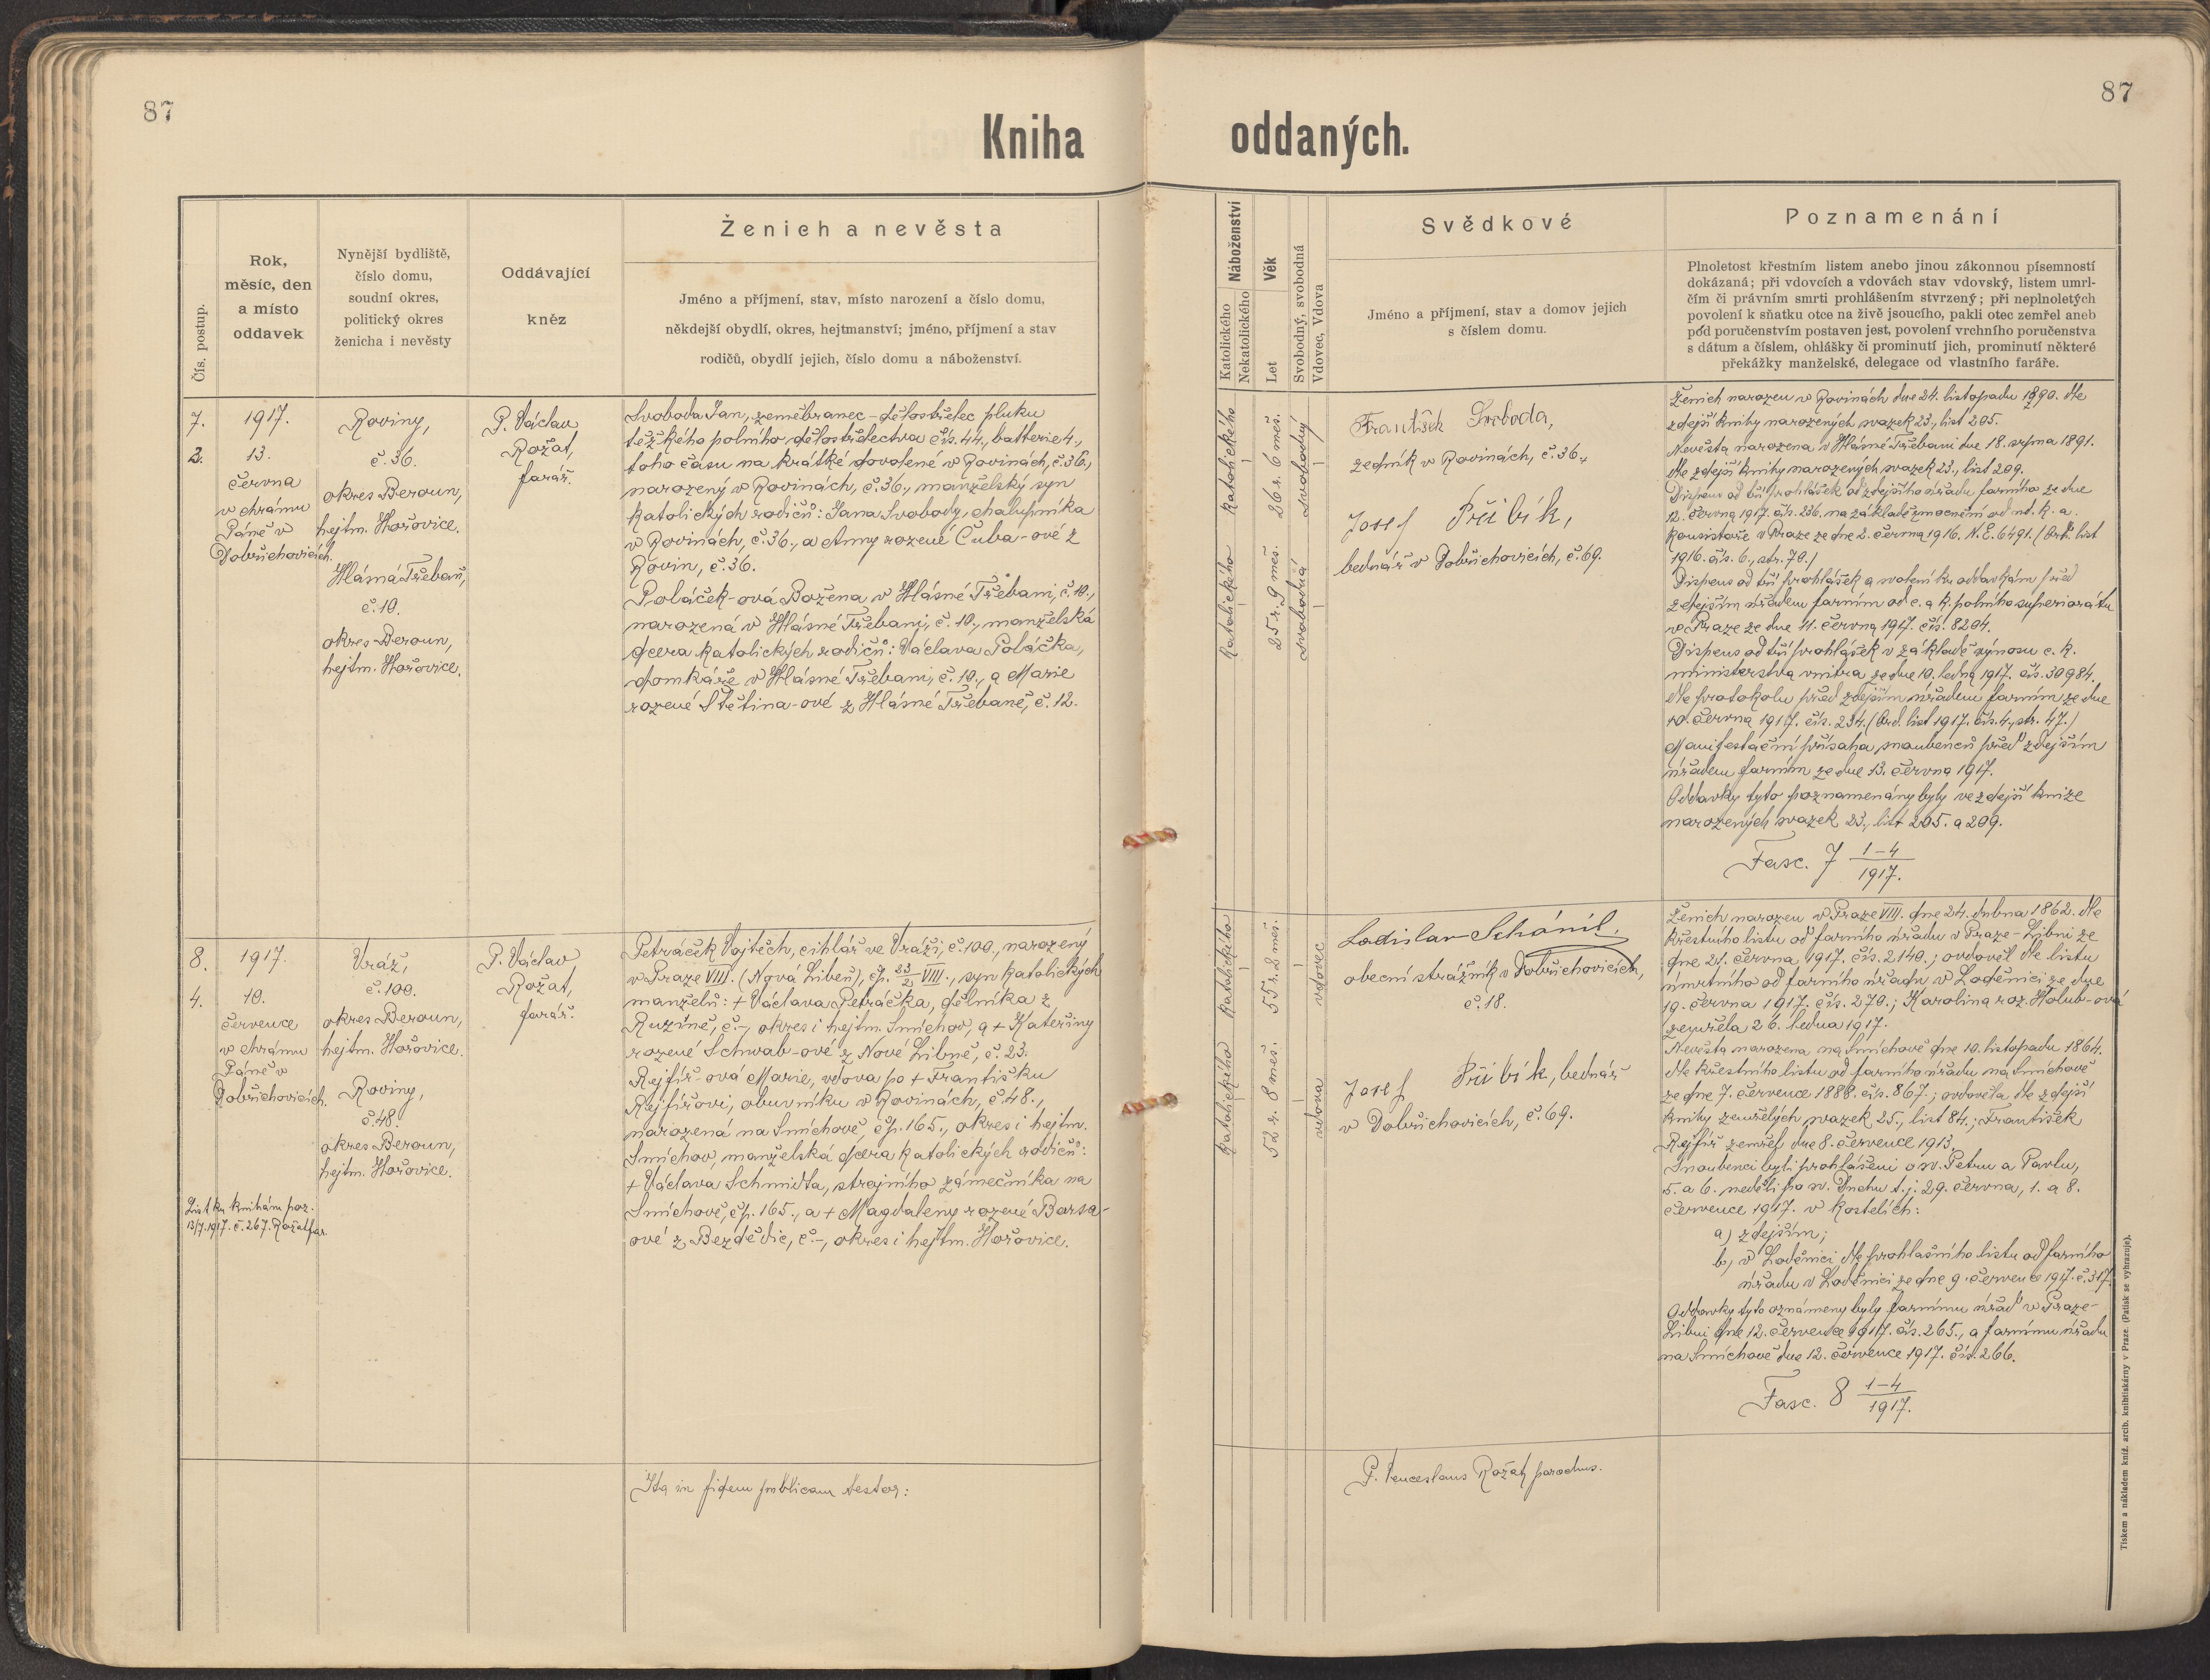 87
87
Kniha oddaných.
Čís. postup.
Rok,
měsíc, den
a místo
oddavek
Nynější bydliště,
číslo domu,
soudní okres,
politický okres
ženicha i nevěsty
Oddávající
kněz
Ženich a nevěsta
Jméno a příjmení, stav, místo narození a číslo domu,
někdejší obydlí, okres, hejtmanství; jméno, příjmení a stav
rodičů, obydlí jejich, číslo domu a náboženství.
Náboženství
Katolického
Nekatolického
Věk
Let
Svobodný, svobodná
Vdovec, Vdova
Svědkové
Jméno a příjmení, stav a domov jejich
s číslem domu.
Poznamenání
Plnoletost křestním listem anebo jinou zákonnou písemností
dokázaná; při vdovcích a vdovách stav vdovský, listem umrl-
čím či právním smrti prohlášením stvrzený; při neplnoletých
povolení k sňatku otce na živě jsoucího, pakli otec zemřel aneb
pod poručenstvím postaven jest, povolení vrchního poručenstva
s dátum a číslem, ohlášky či prominutí jich, prominutí některé
překážky manželské, delegace od vlastního faráře.
7.
2.
1917.
13.
června
v chrámu
Páně v
Dobřichovicích.
Roviny,
č. 36.
okres Beroun,
hejtm. Hořovice.
Hlásná Třebaň,
č. 10.
okres Beroun,
hejtm. Hořovice.
P. Václav
Rožat,
farář.
Svoboda Jan, zeměbranec - dělostřelec pluku
těžkého polního dělostřelectva čís. 44., batterie 4.,
toho času na krátké dovolené v Rovinách, č. 36.,
narozený v Rovinách, č. 36., manželský syn
katolických rodičů: Jana Svobody, chalupníka
v Rovinách, č. 36., a Anny rozené Čuba-ové z
Rovin, č. 36.
Poláček-ová Božena v Hlásné Třebani, č. 10.,
narozená v Hlásné Třebani, č. 10., manželská
dcera katolických rodičů: Václava Poláčka,
domkáře v Hlásné Třebani, č. 10., a Marie
rozené Štětina-ové z Hlásné Třebaně, č. 12.
katolického
26 r. 6 měs.
svobodný
katolického
25 r. 9 měs.
svobodná
František Svoboda,
zedník v Rovinách, č. 36.
Josef Přibík,
bednář v Dobřichovicích, č. 69.
Ženich narozen v Rovinách dne 24. listopadu 1890. dle
zdejší knihy narozených svazek 23., list 205.
Nevěsta narozena v Hlásné Třebani dne 18. srpna 1891.
dle zdejší knihy narozených svazek 23., list 209.
Dispens od tří prohlášek od zdejšího úřadu farního ze dne
12. června 1917. čís. 236. na základě zmocnění od nd. k. a.
konsistoře v Praze ze dne 2. června 1916. N. E. 6491. (Ord. list
1916. čís. 6., str. 70.)
Dispens od tří prohlášek a svolení ku oddavkám před
zdejším úřadem farním od c. a k. polního superiorátu
v Praze ze dne 11. června 1917. čís. 8204.
Dispens od tří prohlášek v základě výnosu c. k.
ministerstva vnitra ze dne 10. ledna 1917. čís. 30984.
dle protokolu před zdejším úřadem farním ze dne
10. června 1917. čís. 234. (Ord. list 1917. čís. 4., str. 47.)
Manifestační přísaha snoubenců před zdejším
úřadem farním ze dne 13. června 1917.
Oddavky tyto poznamenány byly ve zdejší knize
narozených svazek 23., list 205. a 209.
Fasc. 7 1-4
1917.
8.
4.
1917.
10.
července
v chrámu
Páně v
Dobřichovicích.
List ku knihám poz.
13/7. 1917. č. 267. Rožat far.
Vráž,
č. 100.
okres Beroun,
hejtm. Hořovice.
Roviny,
č. 48.
okres Beroun,
hejtm. Hořovice.
P. Václav
Rožat,
farář.
Petráček Vojtěch, cihlář ve Vráži, č. 100., narozený
v Praze VIII. (Nová Libeň), čp. 23/25 VIII., syn katolických
manželů: + Václava Petráčka, dělníka z
Ruzině, č.-, okres i hejtm. Smíchov, a + Kateřiny
rozené Schwab-ové z Nové Libně, č. 23.
Rejfíř-ová Marie, vdova po + Františku
Rejfířovi, obuvníku v Rovinách, č. 48.,
narozená na Smíchově, čp. 165., okres i hejtm.
Smíchov, manželská dcera katolických rodičů:
+ Václava Schmidta, strojního zámečníka na
Smíchově, čp. 165., a + Magdaleny rozené Barsa-
ové z Bezdědic, č.-, okres i hejtm. Hořovice.
katolického
55 r. 2 měs.
vdovec
katolického
52 r. 8 měs.
vdova
Ladislav Schánil,
obecní strážník v Dobřichovicích,
č. 18.
Josef Přibík, bednář
v Dobřichovicích, č. 69.
Ženich narozen v Praze VIII. dne 24. dubna 1862. dle
křestního listu od farního úřadu v Praze-Libni ze
dne 21. června 1917. čís. 2140.; ovdověl dle listu
úmrtního od farního úřadu v Loděnici ze dne
19. června 1917. čís. 270.; Karolina roz. Holub-ová
zemřela 26. ledna 1917.
Nevěsta narozena na Smíchově dne 10. listopadu 1864.
dle křestního listu od farního úřadu na Smíchově
ze dne 7. července 1888. čís. 867.; ovdověla dle zdejší
knihy zemřelých svazek 25., list 84.; František
Rejfíř zemřel dne 8. července 1913.
Snoubenci byli prohlášeni o sv. Petru a Pavlu,
5. a 6. neděli po sv. Duchu t. j. 29. června, 1. a 8.
července 1917. v kostelích:
a) zdejším;
b) v Loděnici dle prohlašního listu od farního
úřadu v Loděnici ze dne 9. července 1917. č. 317.
Oddavky tyto oznámeny byly farnímu úřad v Praze-
Libni dne 12. července 1917. čís. 265., a farnímu úřadu
na Smíchově dne 12. července 1917. čís. 266.
Fasc. 8 1-4
1917.
Ita in fidem publicam testor:
P. Venceslaus Rožat, parochus.
Tiskem a nákladem kníž. arcib. knihtiskárny v Praze. (Patisk se vyhrazuje).